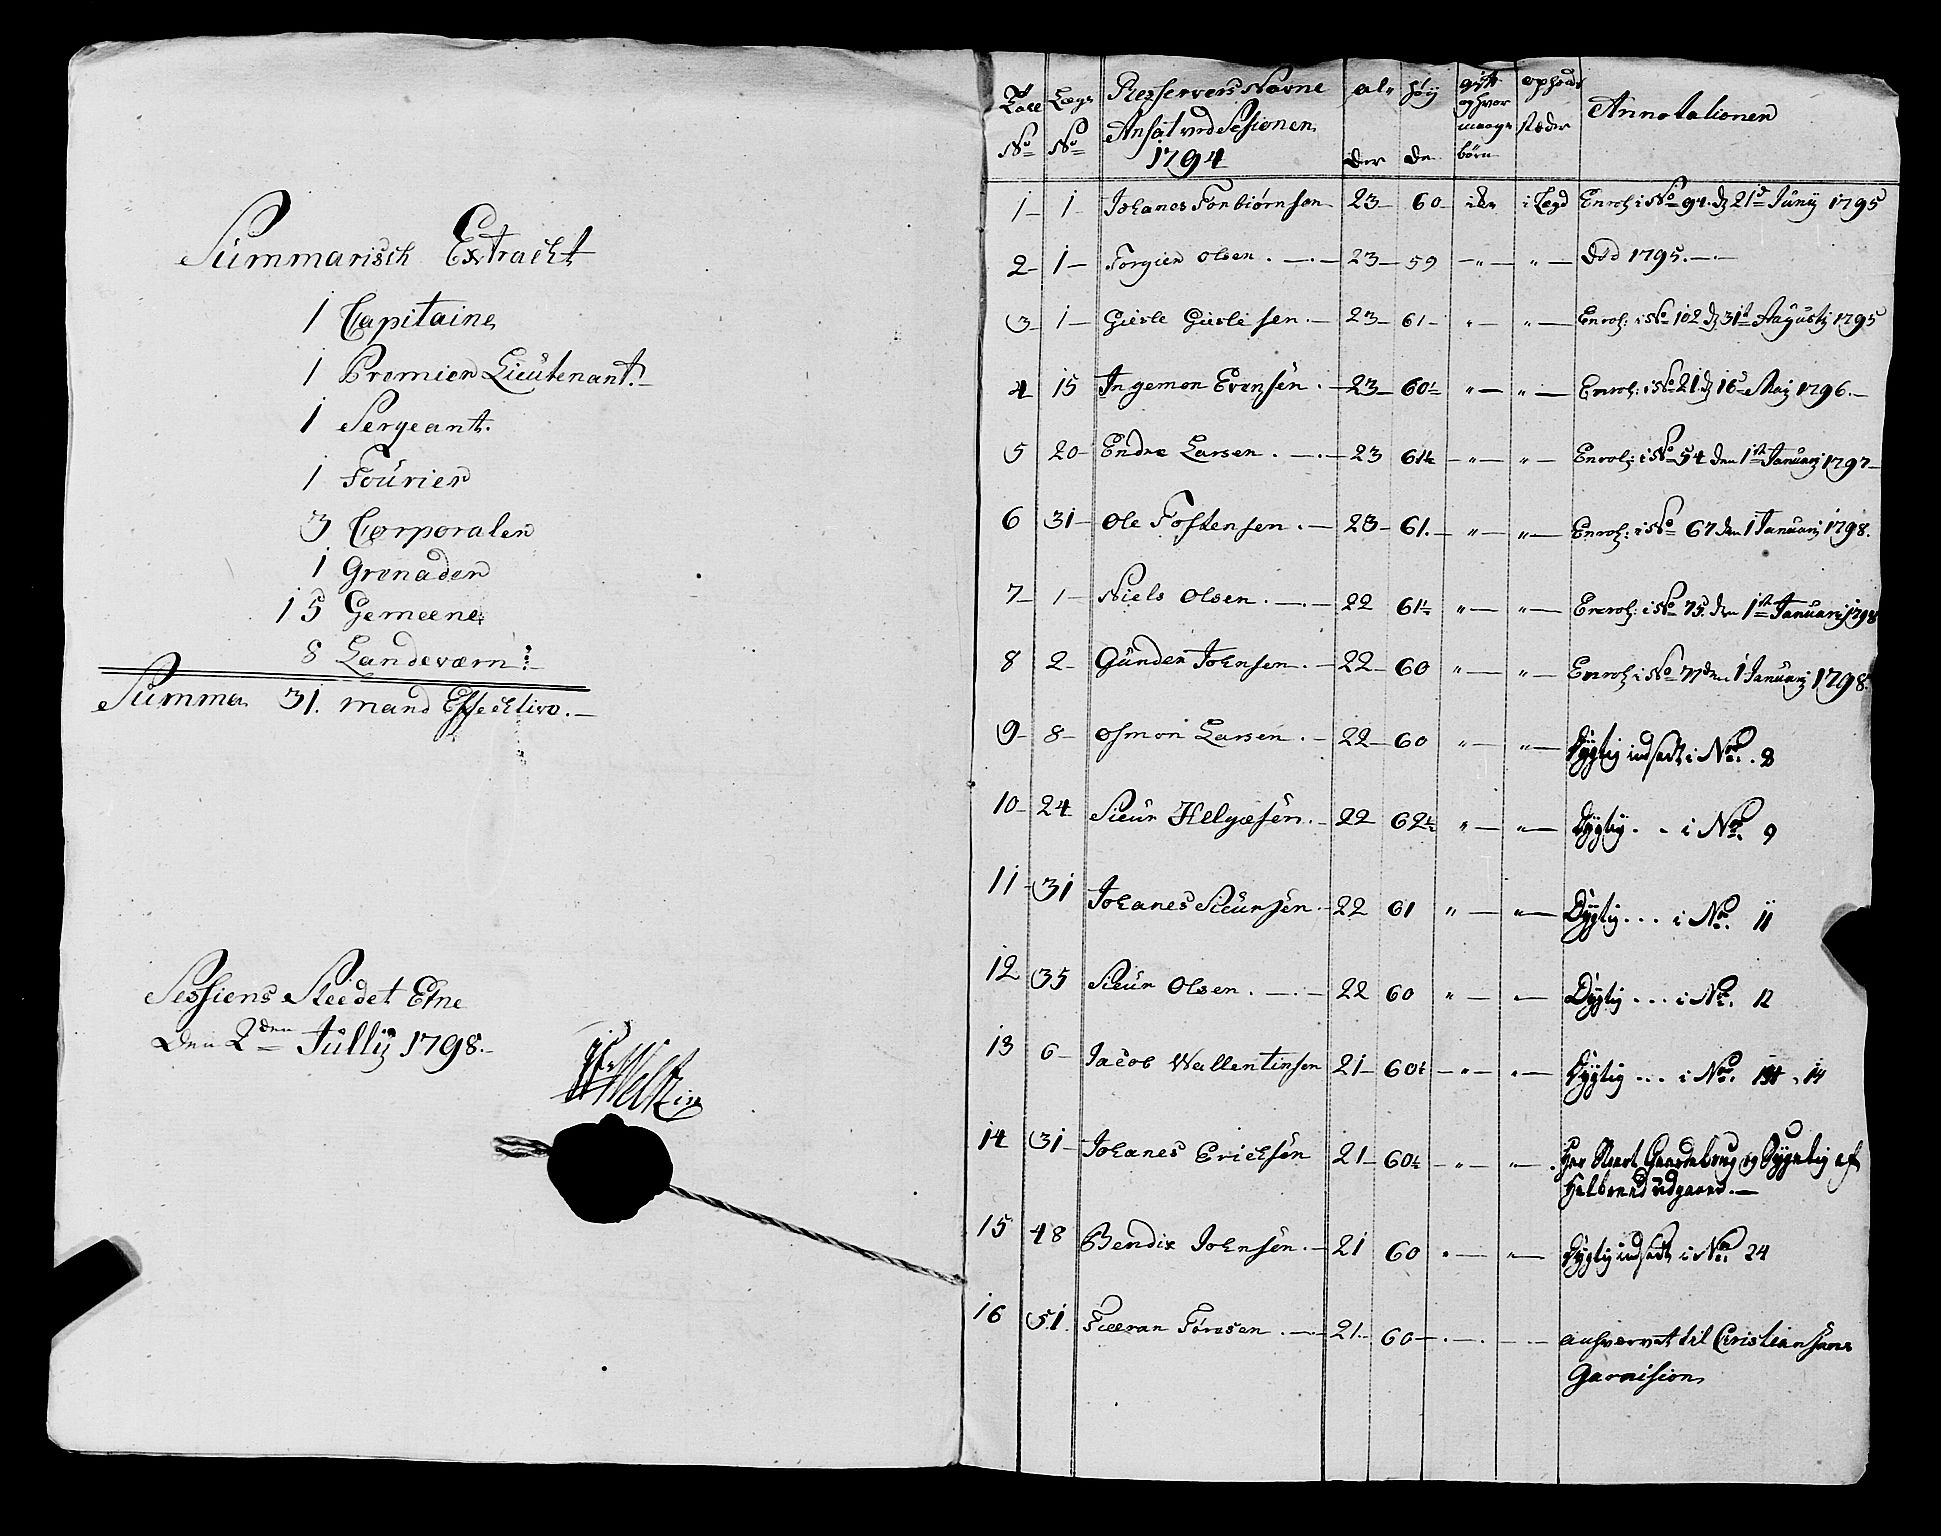 Summarisch Extracht
1 Capitaine
1 Premier Lieutenant.
1 Sergeant.
1 Fourier
3 Corporaler
1 Grenader
15 Gemeene
8 Landeværn
Summa 31. mand Effective.
Sessions Steedet Etne
Den 2den Jullij 1798.
Tall No
Lægs No
Resservers Navne Ansat ved Sesionen 1794
alder
høyde
gift og hvor mange børn
opholds stæder
Annotationer
1 1 Johanes Torbiørnsen 23 60 ike i Legd Enrol: i No 94. d 21d Junij 1795
2 1 Torgier Olsen 23 59 " " Död 1795.
3 1 Giesle Gieslesen 23 61 " " Enrol: i No 102 d 31t Augusti 1795
4 15 Ingemon Evensen 23 60½ " " Enrol: i No 21 d 16d Maj 1796.
5 20 Endre Larsen 23 61½ " " Enrol: i No 54 den 1st Januarj 1797
6 31 Ole Tostensen 23 61. " " Enrol: i No 67 den 1 Januarj 1798.
7 1 Niels Olsen 22 61½ " " Enrol: i No 75. den 1st Januarj 1798
8 2 Gunder Johnsen 22 60 " " Enrol: i No 77 den 1 Januarj 1798.
9 8 Osmon Larsen 22 60 " " Dygtig indsadt i No. 8
10 24 Sieur Helgesen 22 62½ " " Dygtig . . i No. 9
11 31 Johanes Sieursen 22 61 " " Dygtig . . . i No. 11
12 35 Sieur Olsen 22 60 " " Dygtig . . . i No. 12
13 6 Jacob Wallentinsen 21 60½ " " Dygtig . . . i No. 14
14 31 Johanes Ericksen 21 60½ " " Har Gaardebrug og Dygtig af
Halbrend udgaaer.
15 48 Bendix Johnsen 21 60 " " Dygtig indsadt i No. 24
16 51 Toresen 21 60 til Christiansans
Garnision